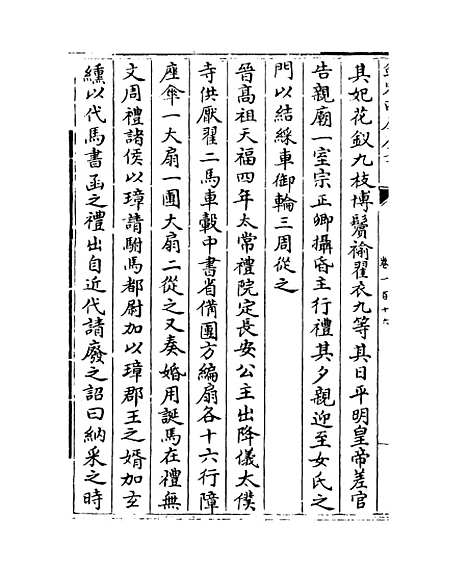 其妃花釵九枝博鬢褕翟衣九等其日平明皇帝差官
告親廟一室宗正卿攝昏主行禮其夕親迎至女氏之
門以結綵車御輪三周從之
晉髙祖天福四年太常禮院定長安公主出降儀太僕
寺供厭翟二馬車轂中書省備團方編扇各十六行障
座傘一大扇一團大扇二從之又奏婚用誕馬在禮無
文周禮諸侯以璋請駙馬都尉加以璋郡王之婿加玄
纁以代馬書函之禮出自近代請廢之詔曰納采之時
卷一百十六